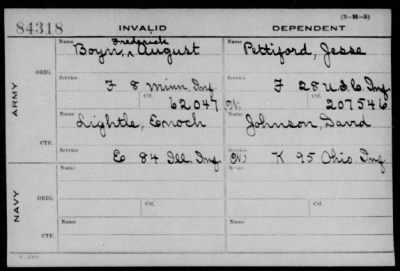 (3-H-5)
84318 INVALID DEPENDENT
Name Frederick Name
Boyn, ^ August Pettiford, Jesse
ORIG. Service Service
F 8 Minn. Inf. F 28 U.S.C. Inf.
Ctf. Ctf.
62047 (N) 207546
ARMY
Name Name
Lightle, Enoch Johnson, David
CTF. Service Service
E 84 Ill. Inf. (N) K 95 Ohio Inf.
Name Name
ORIG.
Ctf. Ctf.
NAVY
Name Name
CTF.